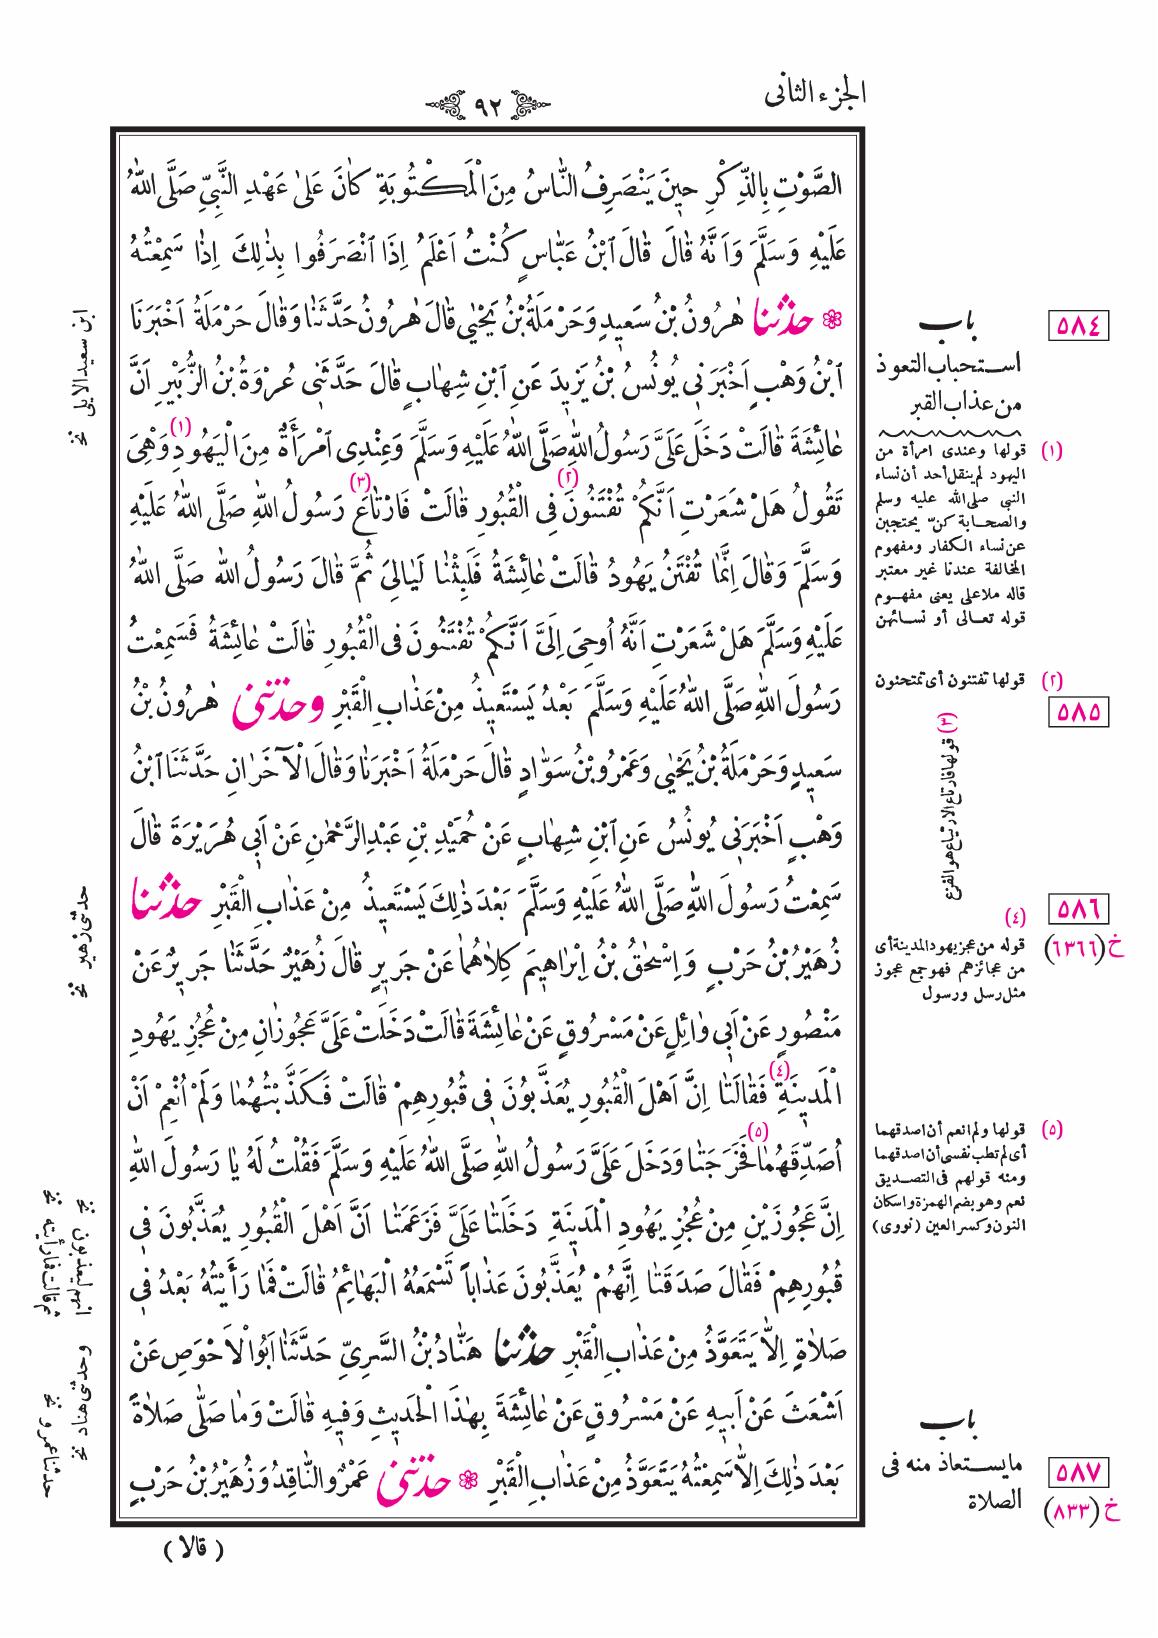 الجزء الثانى
٩٢
الصَّوْتِ بِالذِّكْرِ حِينَ يَنْصَرِفُ النَّاسُ مِنَ الْمَكْتُوبَةِ كَانَ عَلَى عَهْدِ النَّبِيِّ صَلَّى اللَّهُ
عَلَيْهِ وَسَلَّمَ وَاَنَّهُ قَالَ قَالَ ابْنُ عَبَّاسٍ كُنْتُ اَعْلَمُ اِذَا انْصَرَفُوا بِذٰلِكَ اِذَا سَمِعْتُهُ
❁ حدّثنا هٰرُونُ بْنُ سَعِيدٍ وَحَرْمَلَةُ بْنُ يَحْيٰى قَالَ هٰرُونُ حَدَّثَنَا وَقَالَ حَرْمَلَةُ اَخْبَرَنَا
ابْنُ وَهْبٍ اَخْبَرَنِى يُونُسُ بْنُ يَزِيدَ عَنِ ابْنِ شِهَابٍ قَالَ حَدَّثَنِى عُرْوَةُ بْنُ الزُّبَيْرِ اَنَّ
عَائِشَةَ قَالَتْ دَخَلَ عَلَىَّ رَسُولُ اللَّهِ صَلَّى اللَّهُ عَلَيْهِ وَسَلَّمَ وَعِنْدِى امْرَأَةٌ مِنَ الْيَهُودِ (١) وَهْىَ
تَقُولُ هَلْ شَعَرْتِ اَنَّكُمْ تُفْتَنُونَ (٢) فِى الْقُبُورِ قَالَتْ فَارْتَاعَ (٣) رَسُولُ اللَّهِ صَلَّى اللَّهُ عَلَيْهِ
وَسَلَّمَ وَقَالَ اِنَّمَا تُفْتَنُ يَهُودُ قَالَتْ عَائِشَةُ فَلَبِثْنَا لَيَالِىَ ثُمَّ قَالَ رَسُولُ اللَّهِ صَلَّى اللَّهُ
عَلَيْهِ وَسَلَّمَ هَلْ شَعَرْتِ اَنَّهُ اُوحِىَ اِلَىَّ اَنَّكُمْ تُفْتَنُونَ فِى الْقُبُورِ قَالَتْ عَائِشَةُ فَسَمِعْتُ
رَسُولَ اللَّهِ صَلَّى اللَّهُ عَلَيْهِ وَسَلَّمَ بَعْدُ يَسْتَعِيذُ مِنْ عَذَابِ الْقَبْرِ وحدّثنى هٰرُونُ بْنُ
سَعِيدٍ وَحَرْمَلَةُ بْنُ يَحْيٰى وَعَمْرُو بْنُ سَوَّادٍ قَالَ حَرْمَلَةُ اَخْبَرَنَا وَقَالَ الْآخَرَانِ حَدَّثَنَا ابْنُ
وَهْبٍ اَخْبَرَنِى يُونُسُ عَنِ ابْنِ شِهَابٍ عَنْ حُمَيْدِ بْنِ عَبْدِ الرَّحْمٰنِ عَنْ اَبِى هُرَيْرَةَ قَالَ
سَمِعْتُ رَسُولَ اللَّهِ صَلَّى اللَّهُ عَلَيْهِ وَسَلَّمَ بَعْدَ ذٰلِكَ يَسْتَعِيذُ مِنْ عَذَابِ الْقَبْرِ حدّثنا
زُهَيْرُ بْنُ حَرْبٍ وَاِسْحٰقُ بْنُ اِبْرَاهِيمَ كِلَاهُمَا عَنْ جَرِيرٍ قَالَ زُهَيْرٌ حَدَّثَنَا جَرِيرٌ عَنْ
مَنْصُورٍ عَنْ اَبِى وَائِلٍ عَنْ مَسْرُوقٍ عَنْ عَائِشَةَ قَالَتْ دَخَلَتْ عَلَىَّ عَجُوزَانِ مِنْ عُجُزِ يَهُودِ
الْمَدِينَةِ (٤) فَقَالَتَا اِنَّ اَهْلَ الْقُبُورِ يُعَذَّبُونَ فِى قُبُورِهِمْ قَالَتْ فَكَذَّبْتُهُمَا وَلَمْ اُنْعِمْ اَنْ
اُصَدِّقَهُمَا (٥) فَخَرَجَتَا وَدَخَلَ عَلَىَّ رَسُولُ اللَّهِ صَلَّى اللَّهُ عَلَيْهِ وَسَلَّمَ فَقُلْتُ لَهُ يَا رَسُولَ اللَّهِ
اِنَّ عَجُوزَيْنِ مِنْ عُجُزِ يَهُودِ الْمَدِينَةِ دَخَلَتَا عَلَىَّ فَزَعَمَتَا اَنَّ اَهْلَ الْقُبُورِ يُعَذَّبُونَ فِى
قُبُورِهِمْ فَقَالَ صَدَقَتَا اِنَّهُمْ يُعَذَّبُونَ عَذَاباً تَسْمَعُهُ الْبَهَائِمُ قَالَتْ فَمَا رَأَيْتُهُ بَعْدُ فِى
صَلَاةٍ اِلَّا يَتَعَوَّذُ مِنْ عَذَابِ الْقَبْرِ حدّثنا هَنَّادُ بْنُ السَّرِىِّ حَدَّثَنَا اَبُو الْاَحْوَصِ عَنْ
اَشْعَثَ عَنْ اَبِيهِ عَنْ مَسْرُوقٍ عَنْ عَائِشَةَ بِهٰذَا الْحَدِيثِ وَفِيهِ قَالَتْ وَمَا صَلَّى صَلَاةً
بَعْدَ ذٰلِكَ اِلَّا سَمِعْتُهُ يَتَعَوَّذُ مِنْ عَذَابِ الْقَبْرِ ❁ حدّثنى عَمْرٌو النَّاقِدُ وَزُهَيْرُ بْنُ حَرْبٍ
( قالا )
٥٨٤
باب
استحباب التعوذ
من عذاب القبر
(١) قولها وعندى امرأة من
اليهود لم ينقل أحد أن نساء
النبى صلى الله عليه وسلم
والصحابة كنّ يحتجبن
عن نساء الكفار ومفهوم
المخالفة عندنا غير معتبر
قاله ملا على يعنى مفهوم
قوله تعالى أو نسائهن
(٢) قولها تفتنون أى تمتحنون
٥٨٥
(٣) قولها فارتاع الارتياع هو الفزع
٥٨٦
خ (٦٣٦٦)
(٤)
قوله من عجز يهود المدينة أى
من عجائزهم فهو جمع عجوز
مثل رسل ورسول
(٥) قولها ولم انعم أن اصدقهما
أى لم تطب نفسى أن اصدقهما
ومنه قولهم فى التصديق
نعم وهو بضم الهمزة واسكان
النون وكسر العين (نووى)
باب
ما يستعاذ منه فى
الصلاة
٥٨٧
خ (٨٣٣)
ابن سعيد الايلى نخ
حدثنى زهير نخ
ليعذبون نخ
قالت فما رأيته نخ
وحدثنى هناد نخ
حدثنا عمرو نخ